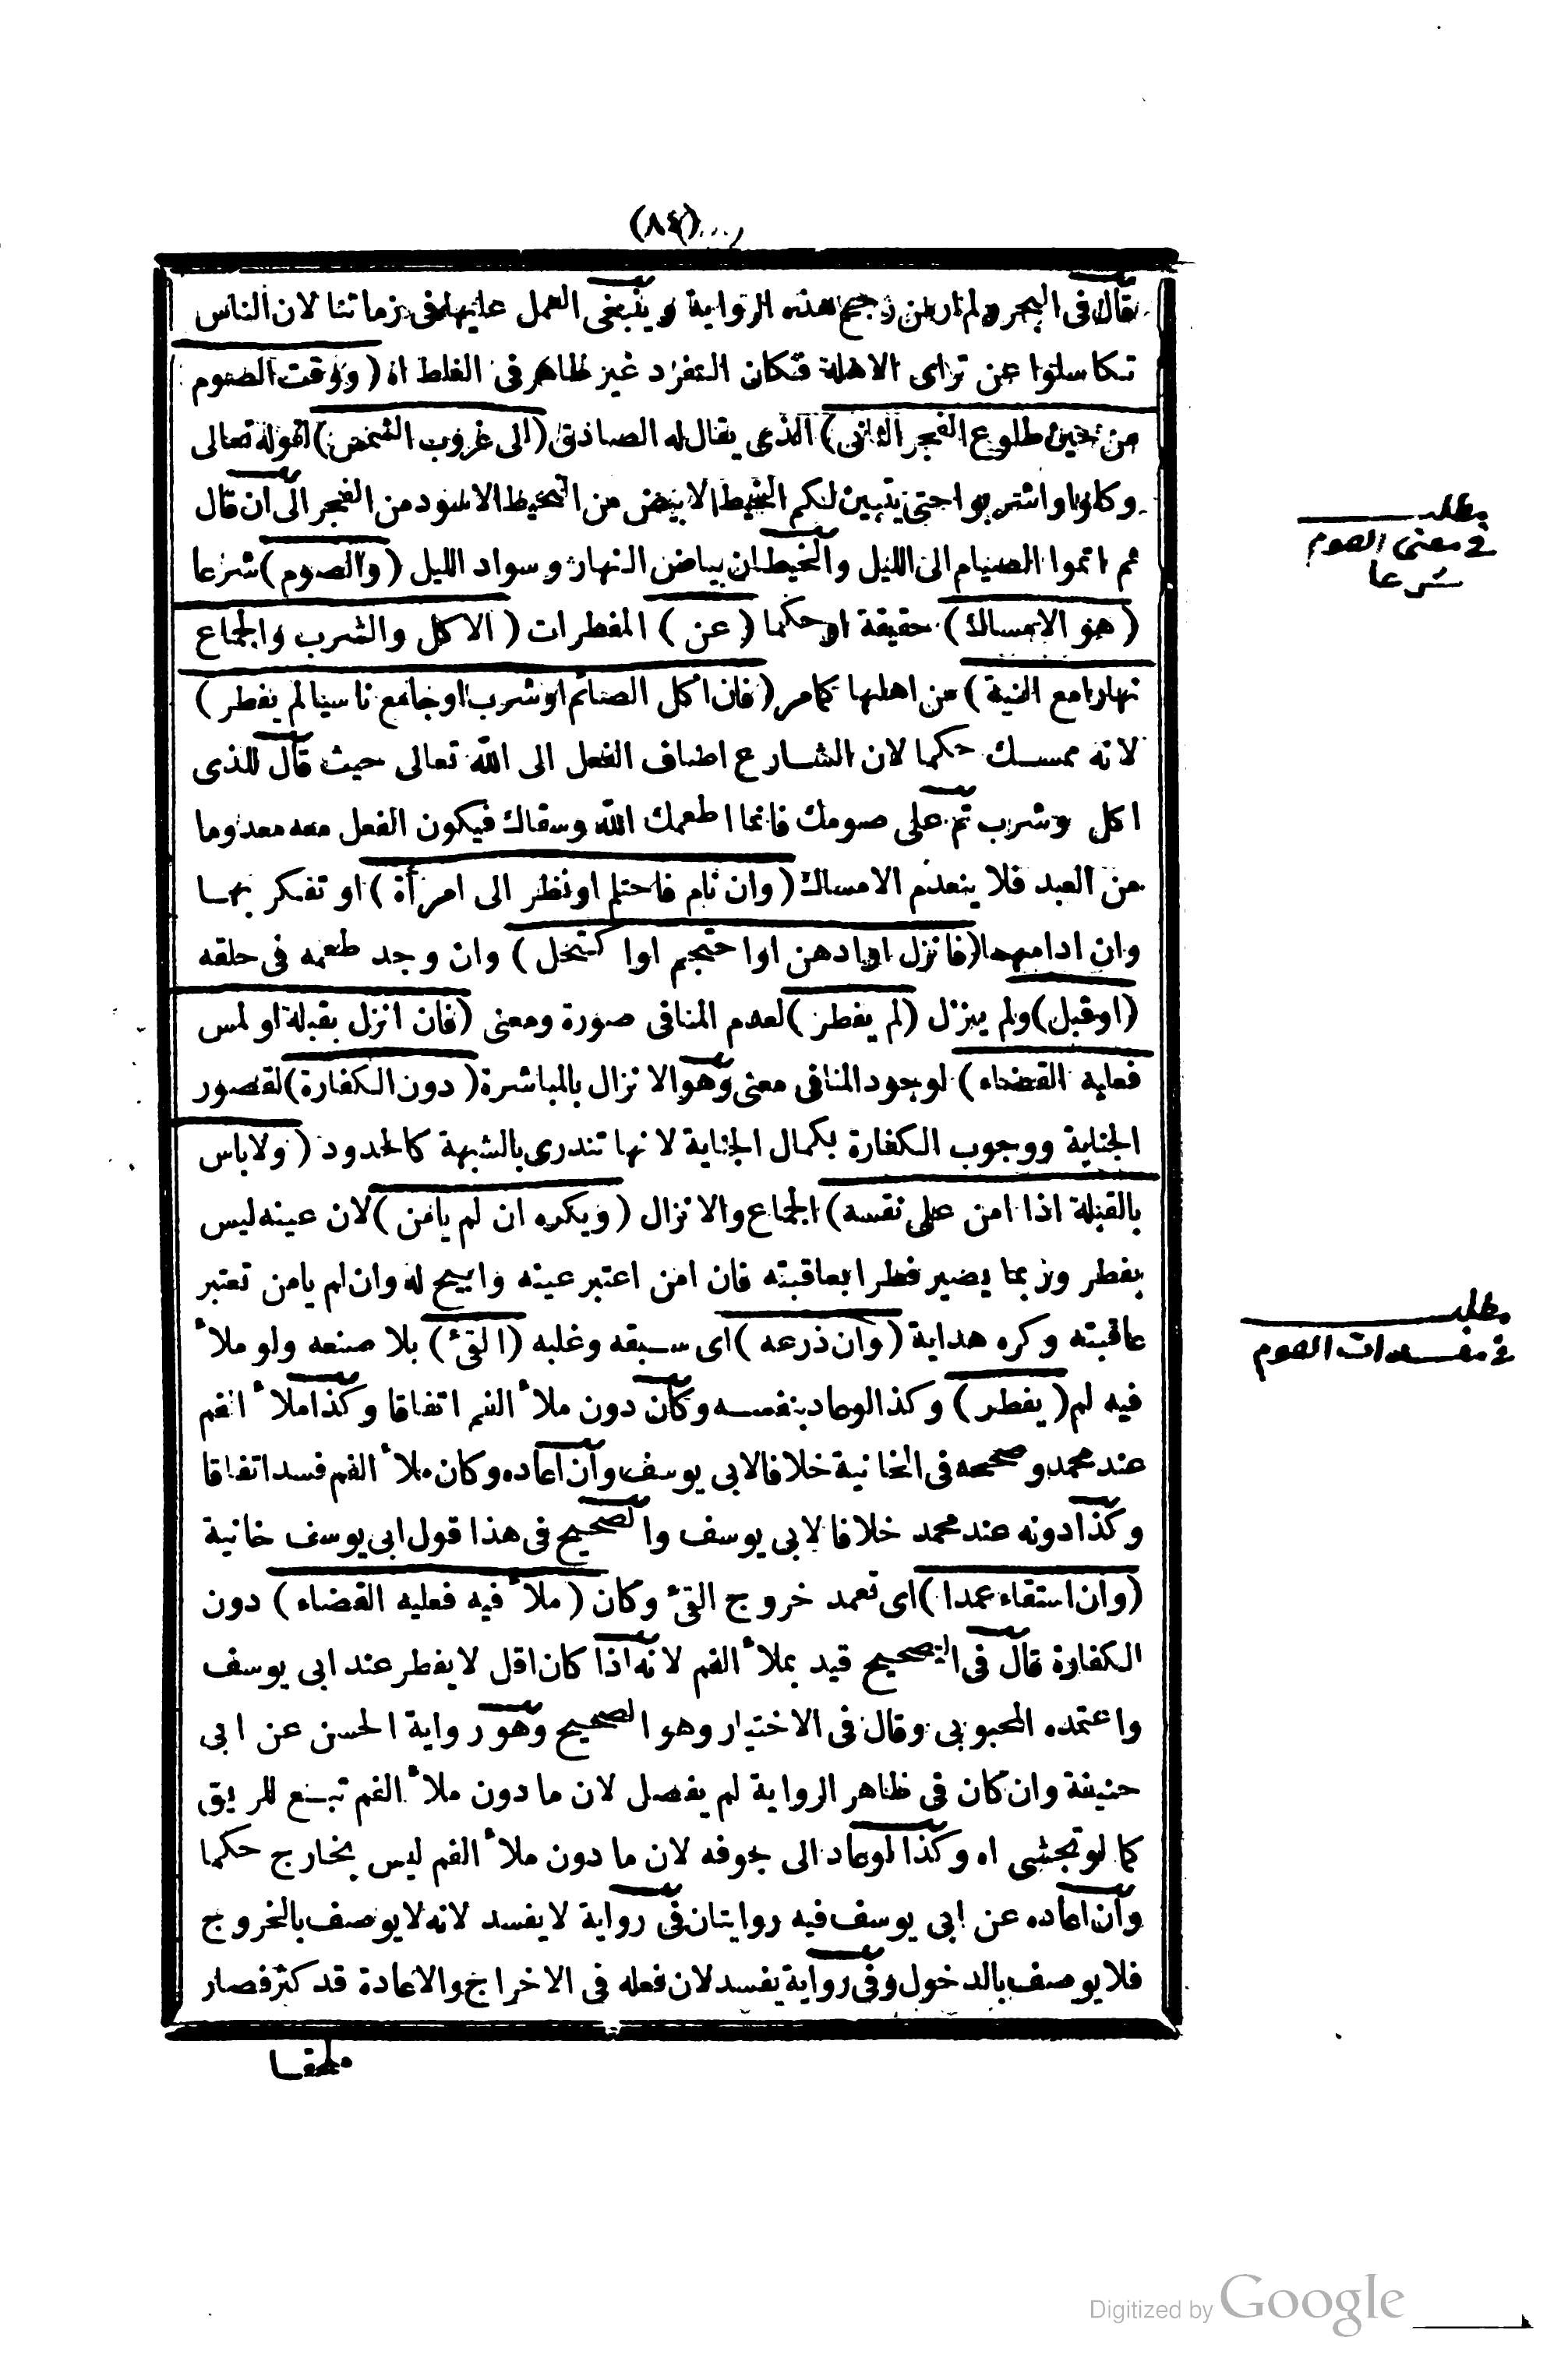 (٨٤)
قال فى البحر ولم ار من رجح هذه الرواية وينبغى العمل عليها فى زماننا لان الناس
تكاسلوا عن ترائى الاهلة فكان التفرد غير ظاهر فى الغلط اه (ووقت الصوم
من حين طلوع الفجر الثانى) الذى يقال له الصادق (الى غروب الشمس) لقوله تعالى
وكلوا واشربوا حتى يتبين لكم الخيط الابيض من الخيط الاسود من الفجر الى ان قال
ثم اتموا الصيام الى الليل والخيطان بياض النهار وسواد الليل (والصوم) شرعا
(هو الامساك) حقيقة او حكما (عن) المفطرات (الاكل والشرب والجماع
نهارا مع النية) من اهلها كما مر (فان اكل الصائم او شرب او جامع ناسيا لم يفطر)
لانه ممسك حكما لان الشارع اضاف الفعل الى الله تعالى حيث قال للذى
اكل وشرب تم على صومك فانما اطعمك الله وسقاك فيكون الفعل معه معدوما
من العبد فلا ينعدم الامساك (وان نام فاحتلم او نظر الى امرأة) او تفكر بها
وان ادامهما (فانزل او ادهن او احتجم او اكتحل) وان وجد طعمه فى حلقه
(او قبل) ولم ينزل (لم يفطر) لعدم المنافى صورة ومعنى (فان انزل بقبلة او لمس
فعليه القضاء) لوجود المنافى معنى وهو الانزال بالمباشرة (دون الكفارة) لقصور
الجناية ووجوب الكفارة بكمال الجناية لانها تندرى بالشبهة كالحدود (ولا باس
بالقبلة اذا امن على نفسه) الجماع والانزال (ويكره ان لم يامن) لان عينه ليس
بفطر وربما يصير فطرا بعاقبته فان امن اعتبر عينه وابيح له وان لم يامن تعتبر
عاقبته وكره هداية (وان ذرعه) اى سبقه وغلبه (القئ) بلا صنعه ولو ملأ
فيه لم (يفطر) وكذا لوعاد بنفسه وكان دون ملأ الفم اتفاقا وكذا ملأ الفم
عند محمد وصححه فى الخانية خلافا لابى يوسف وان اعاده وكان ملأ الفم فسد اتفاقا
وكذا دونه عند محمد خلافا لابى يوسف والصحيح فى هذا قول ابى يوسف خانية
(وان استقاء عمدا) اى تعمد خروج القئ وكان (ملأ فيه فعليه القضاء) دون
الكفارة قال فى التصحيح قيد بملأ الفم لانه اذا كان اقل لا يفطر عند ابى يوسف
واعتمده المحبوبى وقال فى الاختيار وهو الصحيح وهو رواية الحسن عن ابى
حنيفة وان كان فى ظاهر الرواية لم يفصل لان ما دون ملأ الفم تبع للريق
كما لو تجشى اه وكذا لوعاد الى جوفه لان ما دون ملأ الفم ليس بخارج حكما
وان اعاده عن ابى يوسف فيه روايتان فى رواية لا يفسد لانه لا يوصف بالخروج
فلا يوصف بالدخول وفى رواية يفسد لان فعله فى الاخراج والاعادة قد كثر فصار
ملحقا
مطلب
فى معنى الصوم
شرعا
مطلب
فى مفسدات الصوم
Digitized by Google